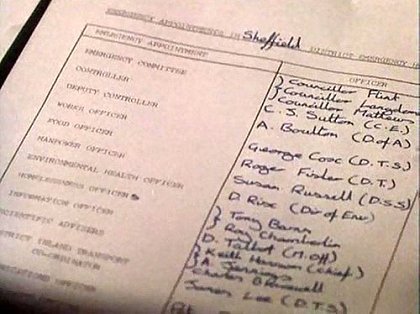 EMERGENCY APPOINTMENTS IN Sheffield DISTRICT EMERGENCY
EMERGENCY APPOINTMENT
OFFICER
EMERGENCY COMMITTEE
} Councillor Flint
} Councillor Langdon
} Councillor Mathews
CONTROLLER
C. S. Sutton (C.E.)
DEPUTY CONTROLLER
A. Boulton (D.of A)
WORKS OFFICER
George Cooc (D.T.S)
FOOD OFFICER
Roger Fisher (D.T.)
MANPOWER OFFICER
Susan Russell (D.S.S)
ENVIRONMENTAL HEALTH OFFICER
D. Rise (Dir of Env)
HOMELESSNESS OFFICERS
} Tony Baran
} Ray Chamberlin
INFORMATION OFFICER
D. Talbot (M.off)
SCIENTIFIC ADVISERS
} Keith (Chief)
} A. Jennings
DISTRICT INLAND TRANSPORT
CO-ORDINATOR
Charles
OFFICER
James Lee (D.T.S)
OFFICER